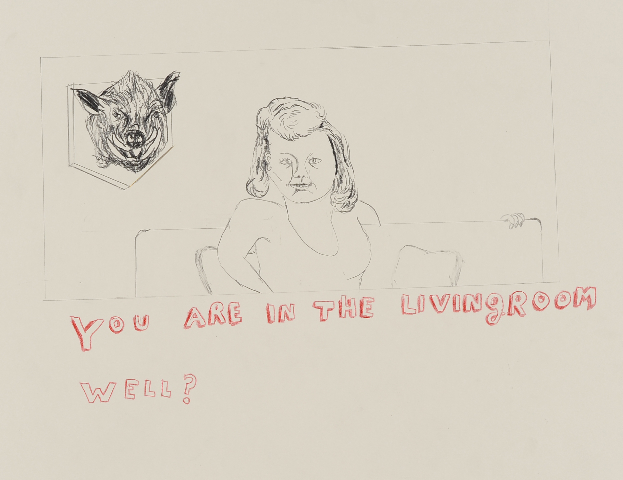 YOU ARE IN THE LIVINGROOM
WELL?